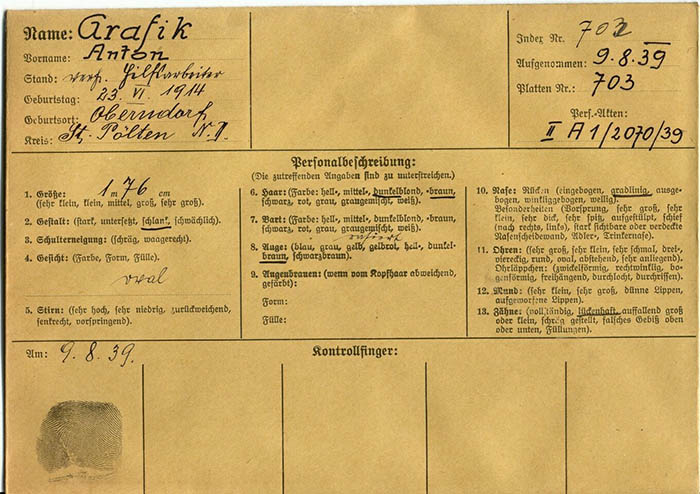 Name: Grafik
Vorname: Anton
Stand: verh. Hilfsarbeiter
Geburtstag: 23. VI. 1914
Geburtsort: Oberndorf
Kreis: St. Pölten N. D.
Index Nr. 702
Aufgenommen: 9.8.39
Platten Nr.: 703
Pers.-Akten:
II A 1/2070/39
Personalbeschreibung:
(Die zutreffenden Angaben sind zu unterstreichen.)
1. Größe: 1 m 76 cm
(sehr klein, klein, mittel, groß, sehr groß).
2. Gestalt: (stark, untersetzt, schlank, schwächlich).
3. Schulterneigung: (schräg, waagerecht).
4. Gesicht: (Farbe, Form, Fülle).
oval
5. Stirn: (sehr hoch, sehr niedrig, zurückweichend,
senkrecht, vorspringend).
6. Haar: (Farbe: hell-, mittel-, dunkelblond, -braun,
schwarz, rot, grau, graugemischt, weiß).
7. Bart: (Farbe: hell-, mittel-, dunkelblond, -braun,
schwarz, rot, grau, graugemischt, weiß).
8. Auge: (blau, grau, gelb, gelbrot, hell-, dunkel-
braun, schwarzbraun).
9. Augenbrauen: (wenn vom Kopfhaar abweichend,
gefärbt):
Form:
Fülle:
10. Nase: Rücken (eingebogen, gradlinig, ausge-
bogen, winkliggebogen, wellig).
Besonderheiten (Vorsprung, sehr groß, sehr
klein, sehr dick, sehr spitz, aufgestülpt, schief
(nach rechts, links), stark sichtbare oder verdeckte
Nasenscheidewand, Adler-, Trinkernase).
11. Ohren: (sehr groß, sehr klein, sehr schmal, drei-,
viereckig, rund, oval, abstehend, sehr anliegend).
Ohrläppchen: (zwickelförmig, rechtwinklig, bo-
genförmig, freihängend, durchlocht, durchrissen).
12. Mund: (sehr klein, sehr groß, dünne Lippen,
aufgeworfene Lippen).
13. Zähne: (vollständig, lückenhaft, auffallend groß
oder klein, schräg gestellt, falsches Gebiß oben
oder unten, Füllungen).
Am: 9. 8. 39.
Kontrollfinger: